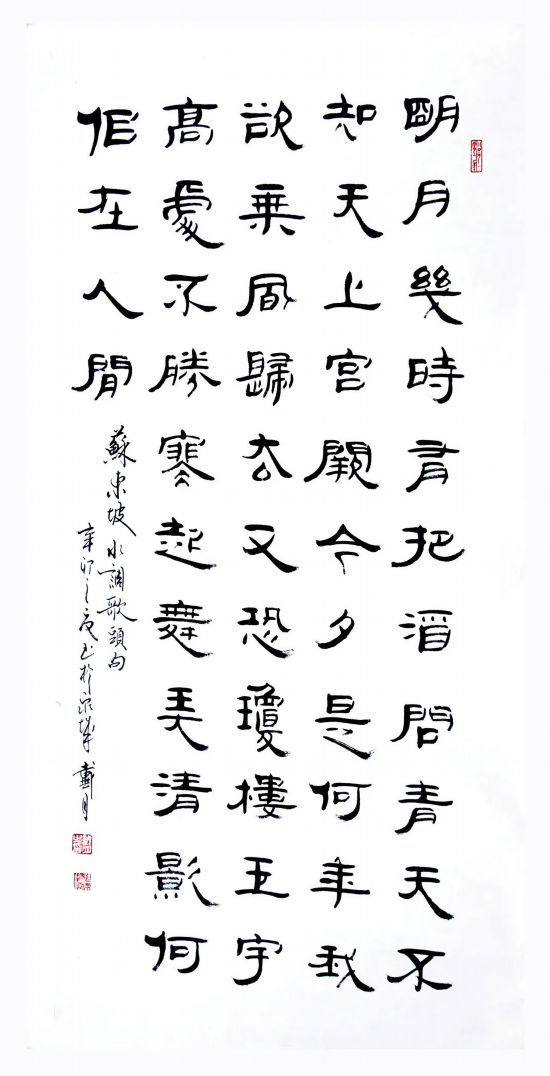 明月幾時有把酒問青天不
知天上宮闕今夕是何年我
欲乘風歸去又恐瓊樓玉宇
高處不勝寒起舞弄清影何
似在人間
蘇東坡水調歌頭句
辛卯之夏书於泉城 戴月